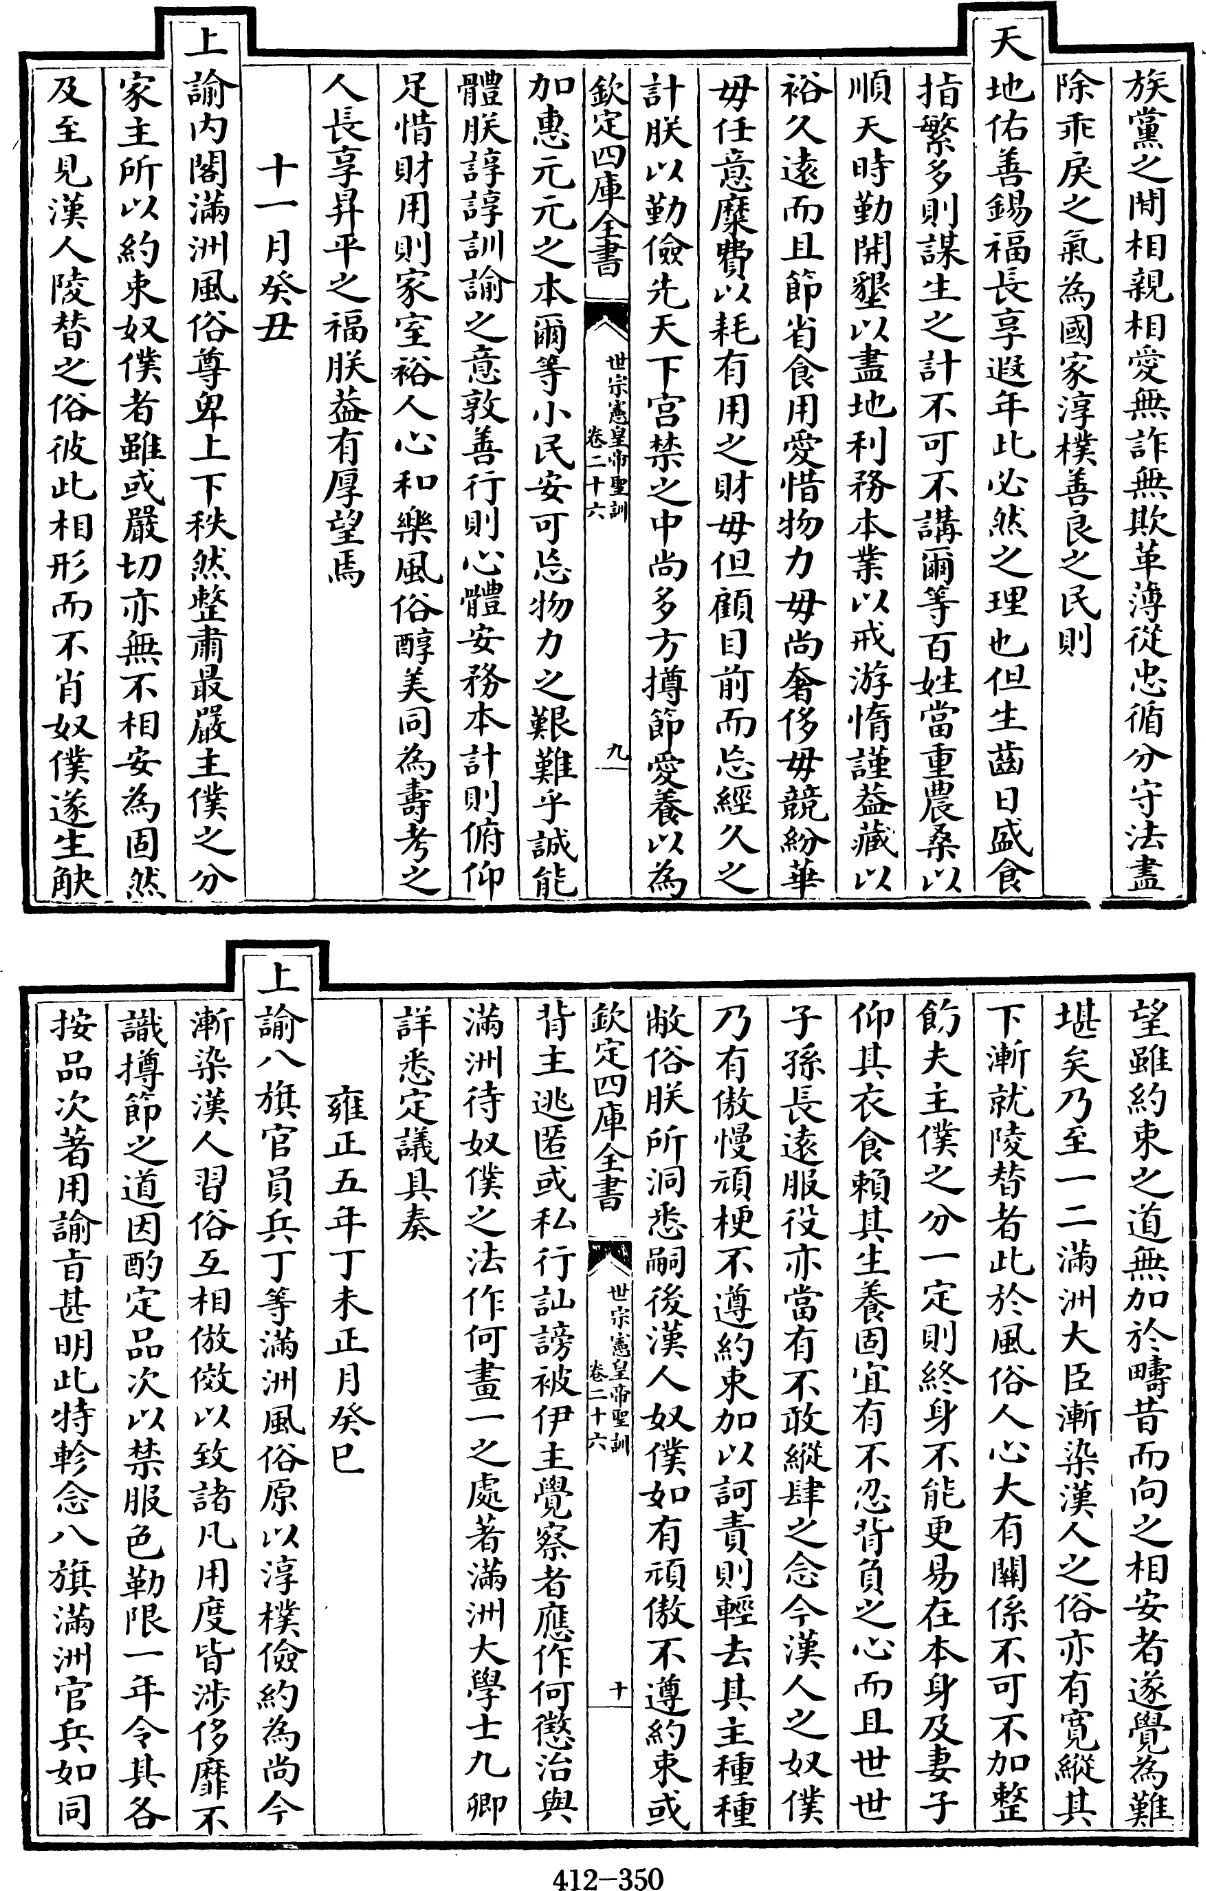 族黨之閒相親相愛無詐無欺革薄從忠循分守法盡
除乖戾之氣為國家淳樸善良之民則
天地佑善錫福長享遐年此必然之理也但生齒日盛食
指繁多則謀生之計不可不講爾等百姓當重農桑以
順天時勤開墾以盡地利務本業以戒游惰謹葢藏以
裕久遠而且節省食用愛惜物力毋尚奢侈毋競紛華
毋任意糜費以耗有用之財毋但顧目前而忘經久之
計朕以勤儉先天下宮禁之中尚多方撙節愛養以為
欽定四庫全書
世宗憲皇帝聖訓
卷二十六
九
加惠元元之本爾等小民安可忘物力之艱難乎誠能
體朕諄諄訓諭之意敦善行則心體安務本計則俯仰
足惜財用則家室裕人心和樂風俗醇美同為壽考之
人長享昇平之福朕葢有厚望焉
十一月癸丑
上諭内閣滿洲風俗尊卑上下秩然整肅最嚴主僕之分
家主所以約束奴僕者雖或嚴切亦無不相安為固然
及至見漢人陵替之俗彼此相形而不肖奴僕遂生觖
望雖約束之道無加於疇昔而向之相安者遂覺為難
堪矣乃至一二滿洲大臣漸染漢人之俗亦有寛縱其
下漸就陵替者此於風俗人心大有關係不可不加整
飭夫主僕之分一定則終身不能更易在本身及妻子
仰其衣食賴其生養固宜有不忍背負之心而且世世
子孫長遠服役亦當有不敢縱肆之念今漢人之奴僕
乃有傲慢頑梗不遵約束加以訶責則輕去其主種種
敝俗朕所洞悉嗣後漢人奴僕如有頑傲不遵約束或
欽定四庫全書
世宗憲皇帝聖訓
卷二十六
十
背主逃匿或私行訕謗被伊主覺察者應作何懲治與
滿洲待奴僕之法作何畫一之處著滿洲大學士九卿
詳悉定議具奏
雍正五年丁未正月癸巳
上諭八旗官員兵丁等滿洲風俗原以淳樸儉約為尚今
漸染漢人習俗互相倣傚以致諸凡用度皆涉侈靡不
識撙節之道因酌定品次以禁服色勒限一年令其各
按品次著用諭旨甚明此特軫念八旗滿洲官兵如同
412-350